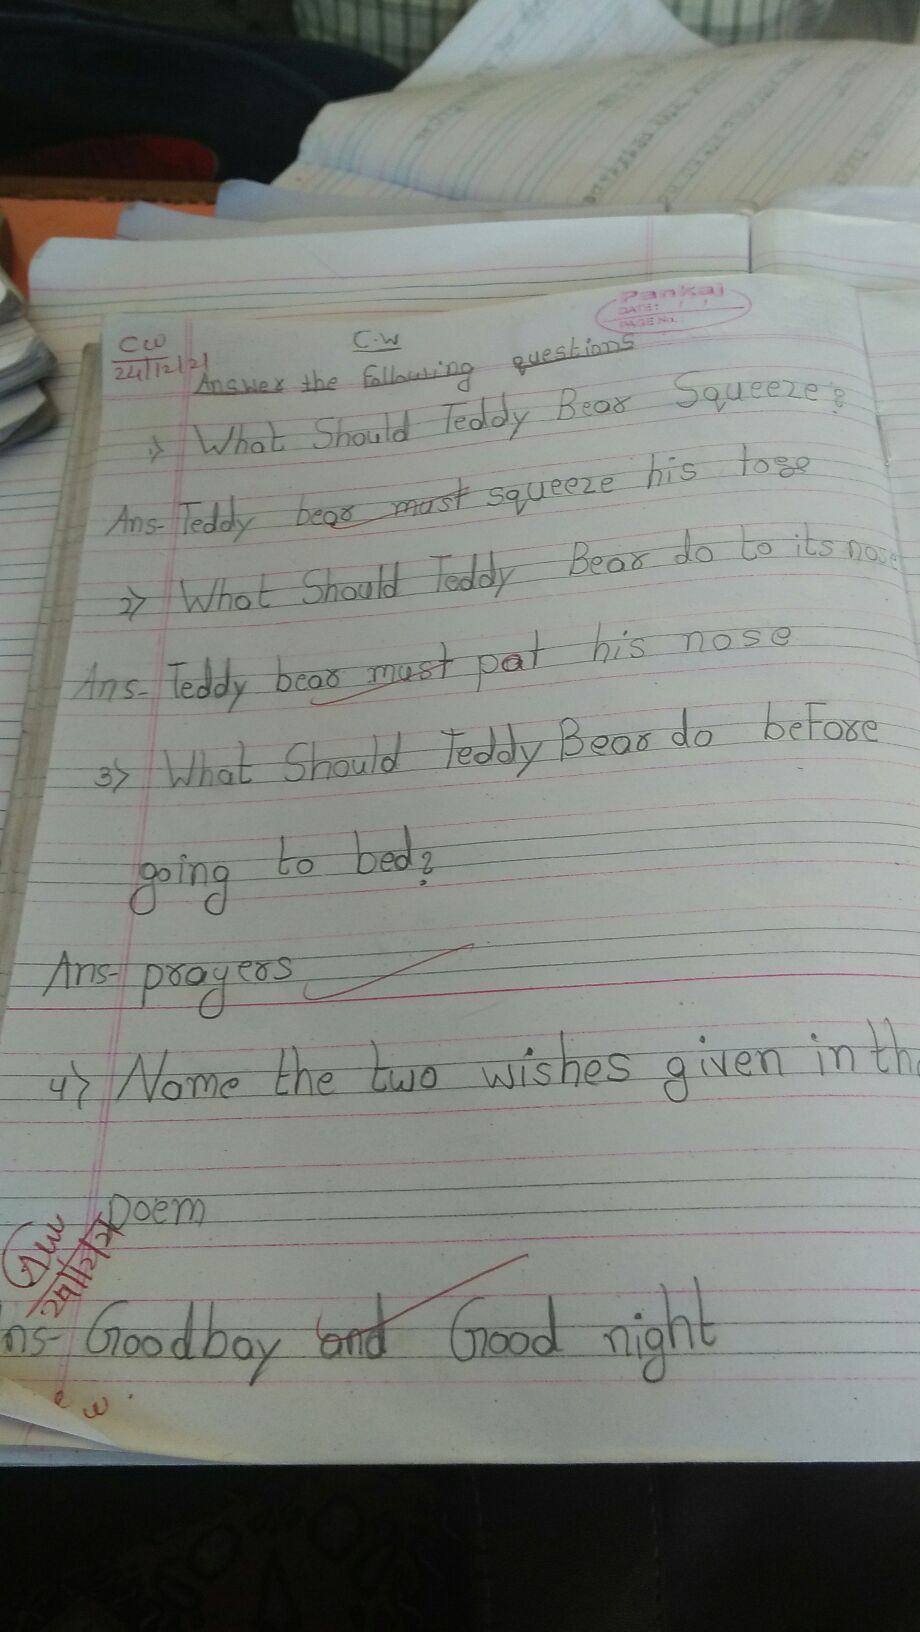 Pankaj
DATE: / /
PAGE No.:
CW
24/12/21
C.W
Answer the Following questions
1> What Should Teddy Bear Squeeze?
Ans- Teddy bear must squeeze his toge
2> What Should Teddy Bear do to its nose
Ans- Teddy bear must pat his nose
3> What Should Teddy Bear do beFore
going to bed?
Ans- prayers
4> Name the two wishes given in the
poem
24/12/21
ns- Goodbay and Good night